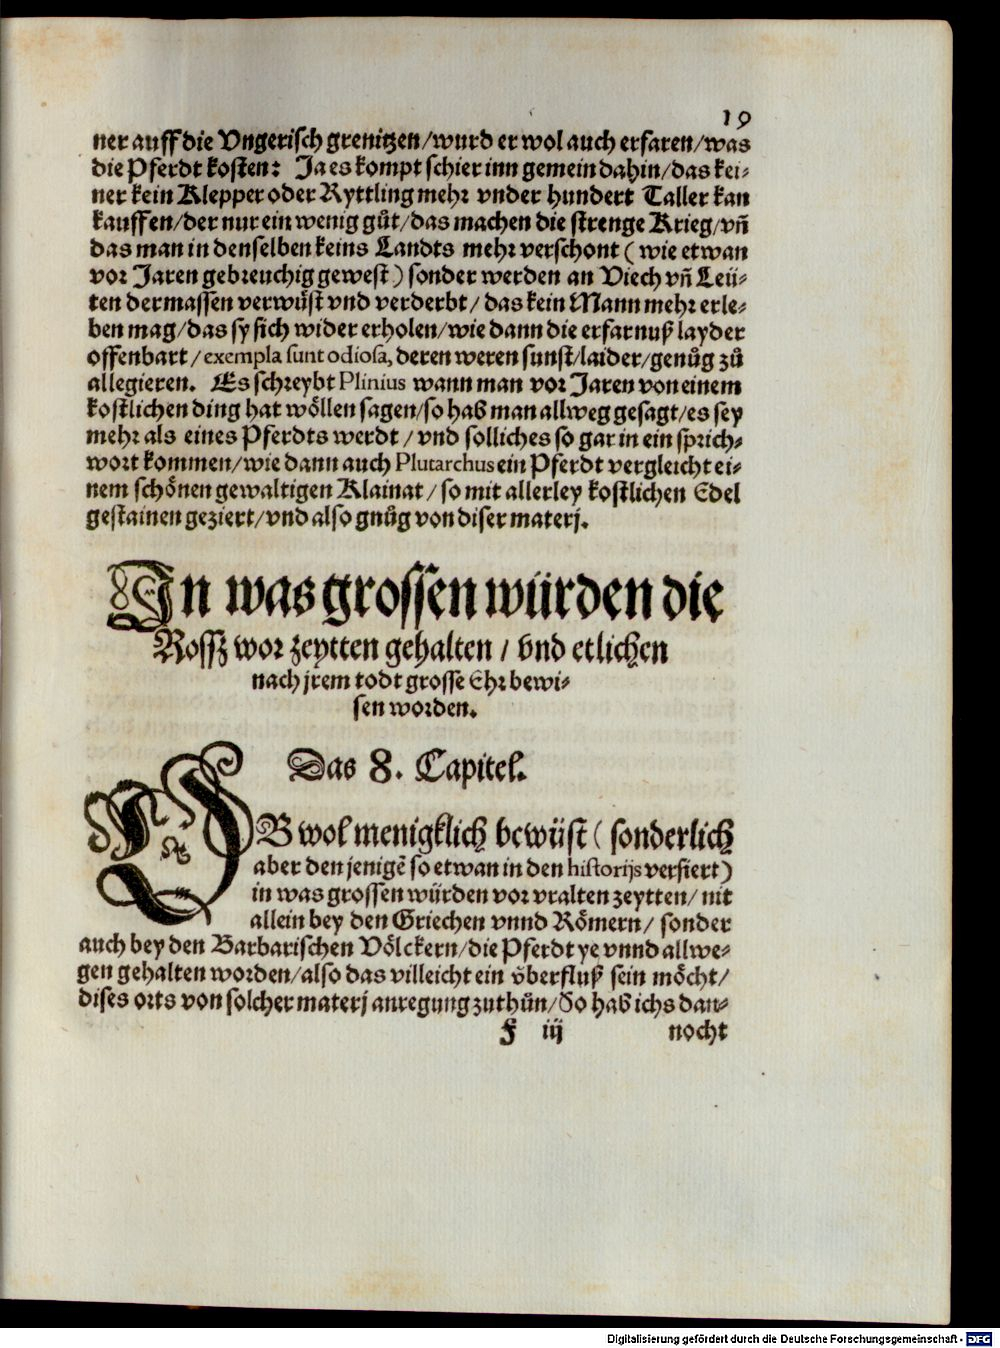 19
ner auff die Vngerisch grenitzen/wurd er wol auch erfaren/was
die Pferdt kosten: Ja es kompt schier inn gemein dahin/das kei⸗
ner kein Klepper oder Ryttling mehr vnder hundert Taller kan
kauffen/der nur ein wenig gůt/das machen die strenge Krieg/vñ
das man in denselben keins Landts mehr verschont ( wie etwan
vor Jaren gebreuchig gewest ) sonder werden an Viech vñ Leü⸗
ten dermassen verwüst vnd verderbt / das kein Mann mehr erle⸗
ben mag/das sy sich wider erholen/wie dann die erfarnuß layder
offenbart / exempla sunt odiosa, deren weren sunst/laider/genůg zů
allegieren. Es schreybt Plinius wann man vor Jaren von einem
kostlichen ding hat wöllen sagen/so hab man allweg gesagt/es sey
mehr als eines Pferdts werdt / vnd solliches so gar in ein sprich⸗
wort kommen/wie dann auch Plutarchus ein Pferdt vergleicht ei⸗
nem schönen gewaltigen Klainat / so mit allerley kostlichen Edel
gestainen geziert/vnd also gnůg von diser materj.
In was grossen würden die
Rossz vor zeytten gehalten / vnd etlichen
nach jrem todt grosse Ehr bewi⸗
sen worden.
Das 8. Capitel.
OB wol menigklich bewüst ( sonderlich
aber den jenigẽ so etwan in den historijs versiert )
in was grossen würden vor vralten zeytten / nit
allein bey den Griechen vnnd Römern / sonder
auch bey den Barbarischen Völckern/die Pferdt ye vnnd allwe⸗
gen gehalten worden/also das villeicht ein vͤberfluß sein möcht/
dises orts von solcher materj anregung zuthůn/So hab ichs dan⸗
F iij nocht
Digitalisierung gefördert durch die Deutsche Forschungsgemeinschaft - DFG